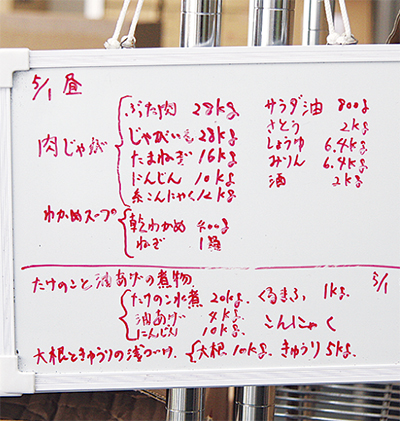 5/1 昼
肉じゃが
ぶた肉 28kg サラダ油 800g
じゃがいも 28kg さとう 2kg
たまねぎ 16kg しょうゆ 6.4kg
にんじん 10kg みりん 6.4kg
糸こんにゃく 12kg 酒 2kg
わかめスープ
乾わかめ 400g
ねぎ 1箱
たけのこと油あげの煮物 5/1
たけのこ水煮 20kg. くるまふ 1kg.
油あげ 4kg こんにゃく
にんじん 10kg.
大根ときゅうりの浅づけ. 大根 10kg. きゅうり 5kg.